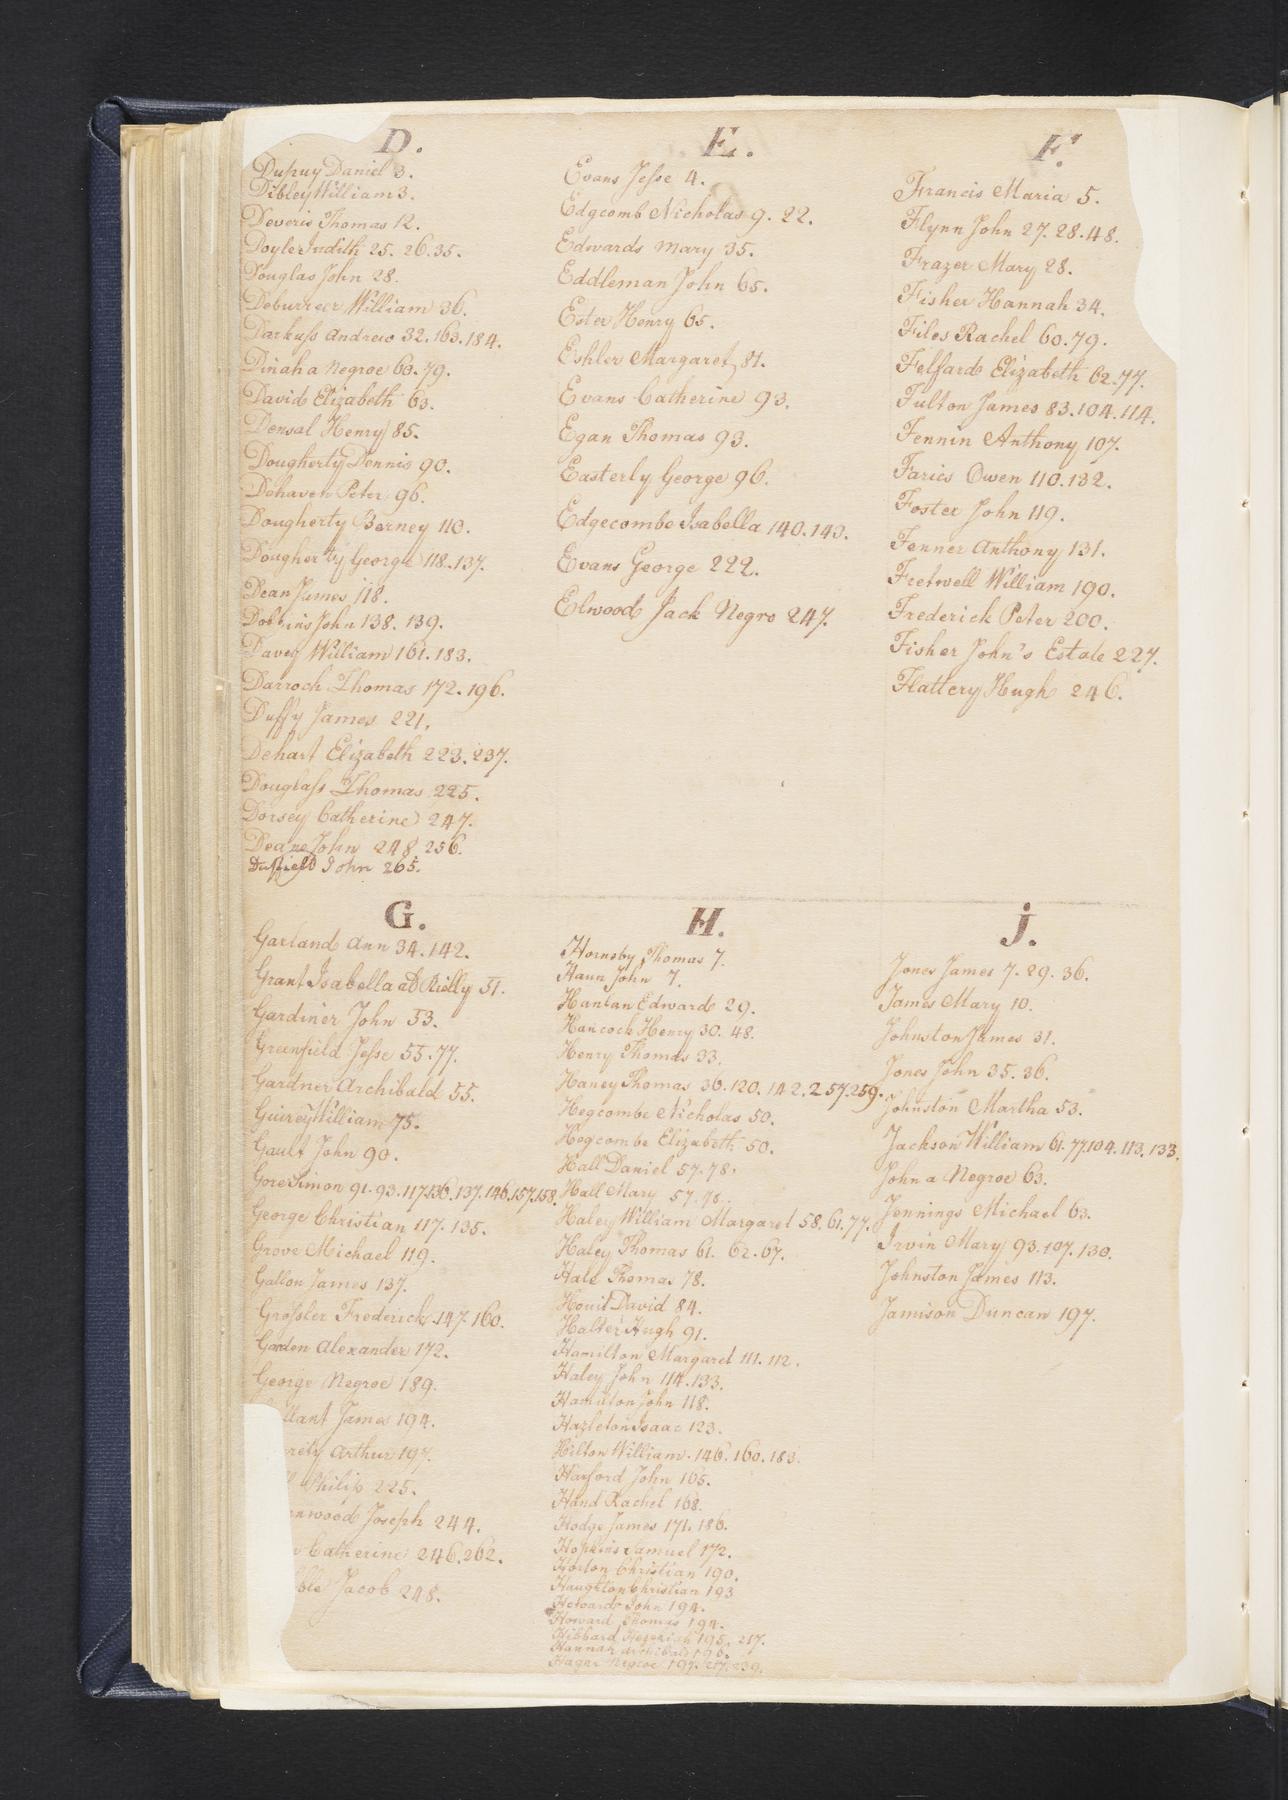 D.
Dupuy Daniel 3.
Dibley William 3.
Deverie Thomas 12.
Doyle Judith 25. 26. 35.
Douglas John 28.
Deburrecr William 36.
Darkuss Andrew 32. 163. 184.
Dinah a Negroe 60. 79.
David Elizabeth 63.
Densal Henry 85.
Dougherty Dennis 90.
Dehaven Peter 96.
Dougherty Berney 110.
Dougherty George 118. 137.
Dean James 118.
Dobbins John 138. 139.
Davey William 161. 183.
Darroch Thomas 172. 196.
Duffy James 221.
Dehart Elizabeth 223. 237.
Douglass Thomas 225.
Dorsey Catherine 247.
Deane John 248 256.
Duffield John 265.
E.
Evans Jesse 4.
Edgcomb Nicholas 9. 22.
Edwards Mary 35.
Eddleman John 65.
Ester Henry 65.
Eshler Margaret 81.
Evans Catherine 93.
Egan Thomas 93.
Easterly George 96.
Edgecombe Isabella 140. 143.
Evans George 222.
Elwood Jack Negro 247.
F.
Francis Maria 5.
Flynn John 27. 28. 48.
Frazer Mary 28.
Fisher Hannah 34.
Files Rachel 60. 79.
Felfard Elizabeth 62. 77.
Fulton James 83. 104. 114.
Fennin Anthony 107.
Faries Owen 110. 132.
Foster John 119.
Fenner Anthony 131.
Fretwell William 190.
Frederick Peter 200.
Fisher John's Estate 227.
Flattery Hugh 246.
G.
Garland Ann 34. 142.
Grant Isabella als Rielly 51.
Gardiner John 53.
Greenfield Jesse 55. 77.
Gardner Archibald 55.
Guirey William 75.
Gault John 90.
Gore Simon 91. 93. 117. 136. 137. 146. 157. 158.
George Christian 117. 135.
Grove Michael 119.
Gallon James 137.
Grossler Frederick 147. 160.
Garden Alexander 172.
George Negroe 189.
llant James 194.
Arthur 197.
Philip 225.
nwood Joseph 244.
Catherine 246. 262.
ble Jacob 248.
H.
Hornsby Thomas 7.
Haun John 7.
Hanlan Edward 29.
Hancock Henry 30. 48.
Henry Thomas 33.
Haney Thomas 36. 120. 142. 257. 259.
Hegcombe Nicholas 50.
Hegcombe Elizabeth 50.
Hall Daniel 57. 78.
Hall Mary 57. 78.
Haley William Margaret 58. 61. 77.
Haley Thomas 61. 62. 67.
Hale Thomas 78.
Houit David 84.
Halter Hugh 91.
Hamilton Margaret 111. 112.
Haley John 114. 133.
Hamilton John 118.
Hazleton Isaac 123.
Hilton William 146. 160. 183.
Harford John 165.
Hand Rachel 168.
Hodge James 171. 186.
Hopkins Samuel 172.
Horton Christian 190.
Haughton Christian 193
Howard John 194.
Howard Thomas 194.
Hibbard Hezekiah 195. 217.
Hannah Archibald 196.
Hagar Negroe 197. 217. 239.
J.
Jones James 7. 29. 36.
James Mary 10.
Johnston James 31.
Jones John 35. 36.
Johnston Martha 53.
Jackson William 61. 77. 104. 113. 133.
John a Negroe 63.
Jennings Michael 63.
Irvin Mary 93. 107. 130.
Johnston James 113.
Jamison Duncan 197.